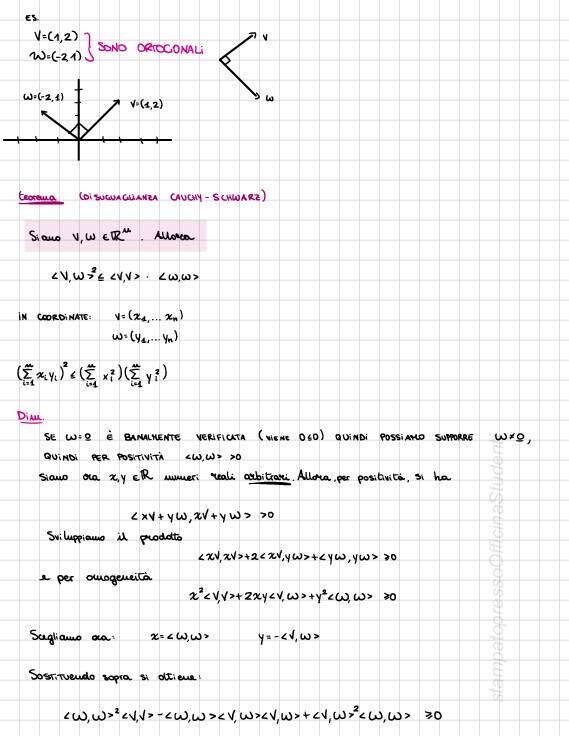 ES.
V=(1,2)
W=(-2,1) } SONO ORTOGONALI
V
W
W=(-2,1)
V=(1,2)
teorema (DISUGUAGLIANZA CAUCHY-SCHWARZ)
Siano V,W ∈ ℝⁿ. Allora
<V,W>² ≤ <V,V> · <W,W>
IN COORDINATE: V=(x₁,... xₙ)
W=(y₁,... yₙ)
(∑ⁿᵢ₌₁ xᵢyᵢ)² ≤ (∑ⁿᵢ₌₁ xᵢ²)(∑ⁿᵢ₌₁ yᵢ²)
Dim.
SE W=0 È BANALMENTE VERIFICATA (VIENE 0≤0) QUINDI POSSIAMO SUPPORRE W≠0,
QUINDI PER POSITIVITÀ <W,W> >0
Siano ora x,y ∈ ℝ numeri reali arbitrari. Allora, per positività, si ha
<xV+yW, xV+yW> >0
Sviluppiamo il prodotto
<xV,xV>+2<xV,yW>+<yW,yW> ≥0
e per omogeneità
x²<V,V>+2xy<V,W>+y²<W,W> ≥0
Scegliamo ora: x=<W,W> y=-<V,W>
Sostituendo sopra si ottiene:
<W,W>²<V,V>-<W,W><V,W><V,W>+<V,W>²<W,W> ≥0
stampatopressoOfficinaStudenti